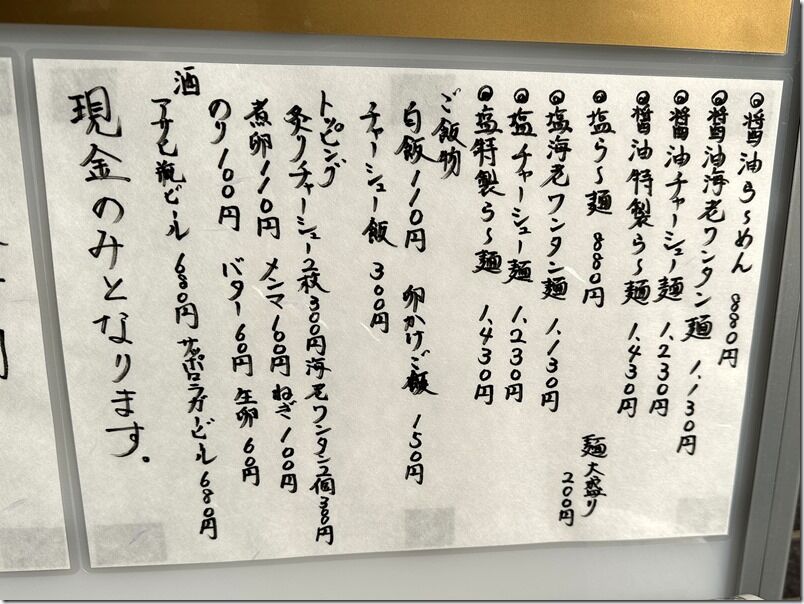 ◎醤油らーめん 880円
◎醤油海老ワンタン麺 1,130円
◎醤油チャーシュー麺 1,230円
◎醤油特製らー麺 1,430円
◎塩らー麺 880円 麺大盛り 200円
◎塩海老ワンタン麺 1,130円
◎塩チャーシュー麺 1,230円
◎塩特製らー麺 1,430円
ご飯物
白飯110円 卵かけご飯 150円
チャーシュー飯 300円
トッピング
炙りチャーシュー2枚300円 海老ワンタン2個
煮卵110円 メンマ100円 ねぎ100円
のり100円 バター60円 生卵60円
酒
アサヒ瓶ビール 680円 サッポロラガービール 680円
現金のみとなります。